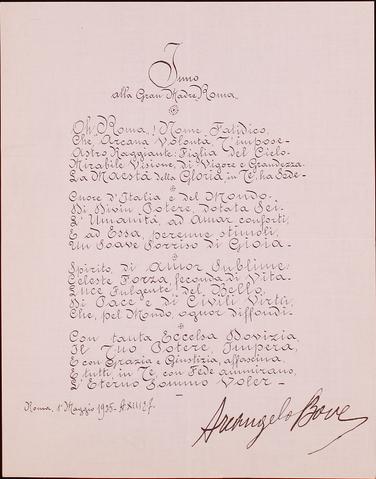 Inno
alla Gran Madre Roma
Oh, Roma! Nome Fatidico,
Che Arcana Volontà T'impose-
Astro Raggiante: Figlia del Cielo-
Mirabile Visione, di Vigore e Grandezza-
La Maestà della Gloria, in Te, ha Sede-
Cuore d'Italia e del Mondo-
Di Divin Potere, dotata Sei-
L'Umanità ad Amar conforti,
E ad Essa, perenne stimoli,
Un Soave Sorriso di Gioia-
Spirito, di Amor Sublime:
Celeste Forza, feconda di Vita-
Luce Fulgente del Bello,
Di Pace e di Civili Virtù,
Che, pel Mondo, ognor diffondi-
Con tanta Eccelsa Dovizia,
Il Tuo Potere, Impera,
E con Grazia e Giustizia, affascina-
E tutti, in Te, con Fede ammirano,
L'Eterno Sommo Voler-
Roma, 1° Maggio 1935-
Arcangelo Bove